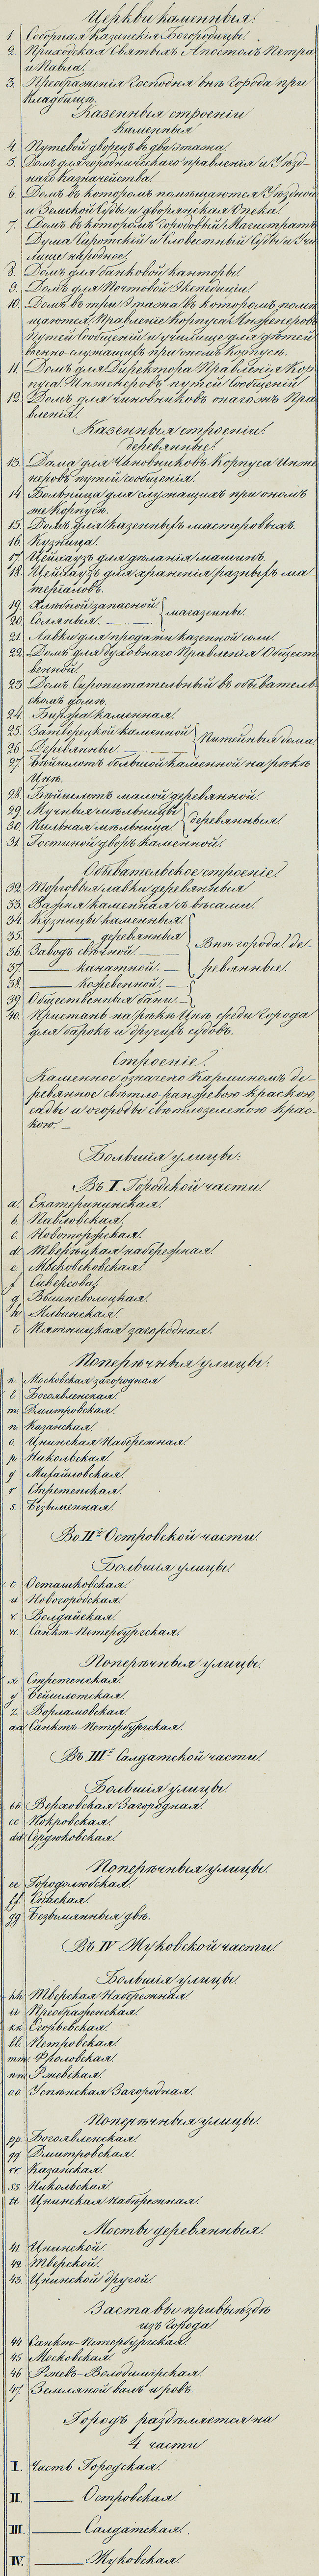 Церкви каменныя:
1 Соборная Казанскія Богородицы.
2. Приходская Святыхъ Апостолъ Петра
и Павла.
3. Преображенія Господня внѣ города при
кладбищѣ.
Казенныя строеніи
каменныя
4 Путевой дворецъ въ два этажа.
5. Домъ для городническаго правленія и Уѣзд-
наго Казначейства.
6. Домъ въ которомъ помѣщаются Уѣздной
и Земской Суды и дворянская Опека.
7. Домъ въ которомъ Городовый Магистратъ
Дума Сиротскій и Словестный Суды и Учи-
лище народное.
8. Домъ для банковой канторы.
9. Домъ для Почтовой Экспедиціи.
10. Домъ въ три этажа въ которомъ помѣ-
щаются Правленіе Корпуса Инженеровъ
Путей Сообщеній и училище для дѣтей
венно служащихъ при ономъ Корпусѣ.
11 Домъ для Директора Правленія Кор-
пуса Инженеровъ путей Сообщеній
12. Домъ для чиновниковъ онагожъ Пра-
вленія.
Казенныя строеніи.
деревянные:
13. Дома для Чиновниковъ Корпуса Инже-
неровъ путей сообщенія.
14. Больница для служащихъ при ономъ
же Корпусѣ.
15. Домъ для казенныхъ мастеровыхъ.
16. Кузница.
17. Цейхаузъ для дѣланія машинъ.
18. Цейхаузъ для храненія разныхъ ма-
теріаловъ.
19. Хлѣбной запасной
20. Соляныя. магазейны.
21. Лавки для продажи казенной соли.
22. Домъ для духовнаго Правленія Общест-
венной.
23. Домъ Сиропитательный въ обыватель-
скомъ домѣ.
24. Биржа каменная.
25. Затверецкой каменной
26. Деревянные. Питейныя дома
27. Бейшлотъ большой каменной на рѣкѣ
Цнѣ.
28. Бейшлотъ малой деревянной.
29. Мучныя мѣльницы
30. Пильная мѣльница. деревянныя.
31. Гостиной дворъ каменной.
Обывательское строеніе.
32. Торговыя лавки деревянныя
33. Важня каменная съ вѣсами.
34. Кузницы каменныя.
35. —— деревянныя
36. Заводъ свѣчной. Внѣ города де-
37. —— канатной. ревянные.
38. —— кожевенной.
39. Общественныя бани.
40. Пристань на рѣкѣ Цнѣ среди города
для барокъ и другихъ судовъ.
Строеніе.
Каменное означено Карминомъ де-
ревянное свѣтло-ранжевою краскою,
сады и огороды свѣтлозеленою крас-
кою.
Большія улицы:
Въ I. Городской части.
a. Екатерининская.
b. Павловская.
c. Новоторжская.
d. Тверецкая набережная.
e. Московсковская.
f Сиверсова.
g Вышневолоцкая.
h Клвинская.
i Пятницкая загородная.
Поперѣчныя улицы:
k. Московская загородная
l. Богоявленская.
m. Дмитровская.
n Казанская.
o Цнинская Набережная.
p. Никольская.
q Михайловская.
r Стретенская.
s. Безъименная.
Во II й Островской части.
Большія улицы.
t. Осташковская.
u Новогородская.
v. Волдайская.
w. Санкт-Петербургская.
Поперѣчныя улицы.
x. Стретенская.
y Бейшлотская.
z. Ворламовская.
aa Санктъ-Петербургская.
Въ III й Салдатской части.
Большія улицы.
bb Верховская Загородная.
cc Покровская.
dd Сердюковская.
Поперѣчныя улицы.
ee Городолюбская.
ff. Спаская.
gg Безъимянныя двѣ.
Въ IV Жуковской части.
Большія улицы.
hh Тверская Набережная
ii Преображенская.
kk Егорьевская.
ll. Петровская.
mm. Фроловская.
nn Ржевская.
oo. Успѣнская Загородная.
Поперѣчныя улицы.
pp. Богоявленская.
qq Дмитровская.
rr Казанская.
ss. Никольская.
tt Цнинская набережная.
Мосты деревянныя.
41. Цнинской.
42. Тверской.
43. Цнинской другой.
Заставы привыѣздѣ
изъ города
44 Санкт-Петербургская.
45 Московская.
46 Ржевъ-Володимірская.
47. Земляной валъ и ровъ.
Городъ раздѣляется на
4 части
I. Часть Городская.
II. —— Островская.
III. —— Салдатская.
IV. —— Жуковская.